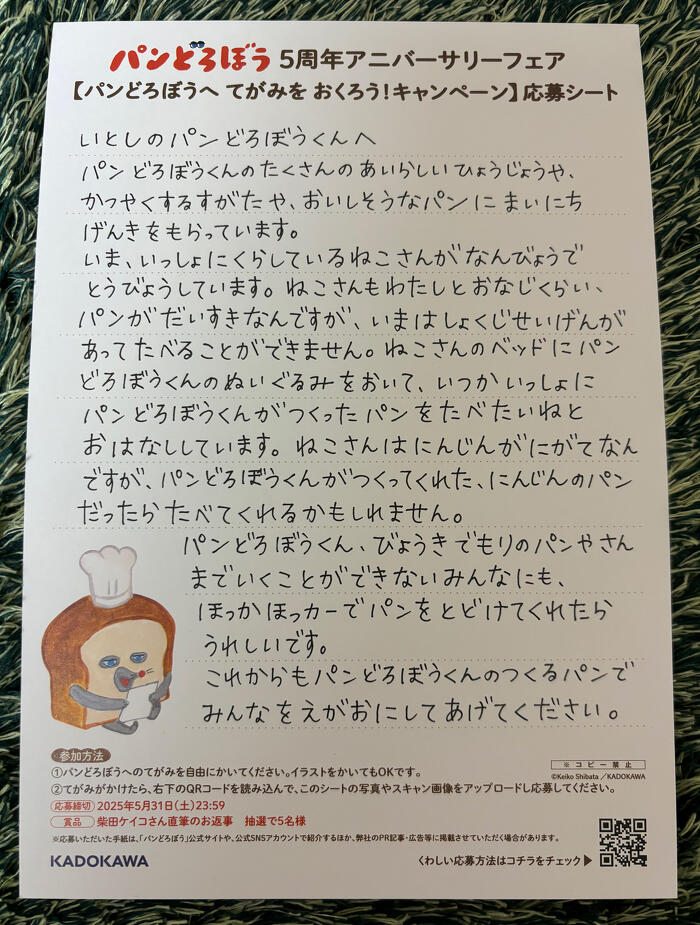 パンどろぼう 5周年アニバーサリーフェア
【パンどろぼうへ てがみを おくろう！キャンペーン】応募シート
いとしのパンどろぼうくんへ
パンどろぼうくんのたくさんのあいらしいひょうじょうや、
かつやくするすがたや、おいしそうなパンにまいにち
げんきをもらっています。
いま、いっしょにくらしているねこさんがなんびょうで
とうびょうしています。ねこさんもわたしとおなじくらい、
パンがだいすきなんですが、いまはしょくじせいげんが
あってたべることができません。ねこさんのベッドにパン
どろぼうくんのぬいぐるみをおいて、いつかいっしょに
パンどろぼうくんがつくったパンをたべたいねと
おはなししています。ねこさんはにんじんがにがてなん
ですが、パンどろぼうくんがつくってくれた、にんじんのパン
だったらたべてくれるかもしれません。
パンどろぼうくん、びょうきでもりのパンやさん
までいくことができないみんなにも、
ほっかほっカーでパンをとどけてくれたら
うれしいです。
これからもパンどろぼうくんのつくるパンで
みんなをえがおにしてあげてください。
参加方法
①パンどろぼうへのてがみを自由にかいてください。イラストをかいてもOKです。
②てがみがかけたら、右下のQRコードを読み込んで、このシートの写真やスキャン画像をアップロードし応募してください。
応募締切 2025年5月31日(土)23:59
賞品 柴田ケイコさん直筆のお返事 抽選で5名様
※応募いただいた手紙は、「パンどろぼう」公式サイトや、公式SNSアカウントで紹介するほか、弊社のPR記事・広告等に掲載させていただく場合があります。
※コピー禁止
©Keiko Shibata／KADOKAWA
KADOKAWA
くわしい応募方法はコチラをチェック▶